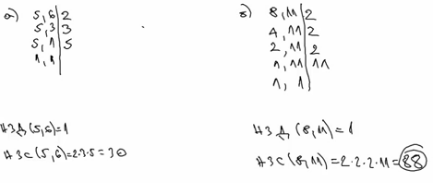 а) 5, 6 | 2
5, 3 | 3
5, 1 | 5
1, 1 |
НЗД (5, 6) = 1
НЗС (5, 6) = 2·3·5 = 30
б) 8, 11 | 2
4, 11 | 2
2, 11 | 2
1, 11 | 11
1, 1
НЗД (8, 11) = 1
НЗС (8, 11) = 2·2·2·11 = 88